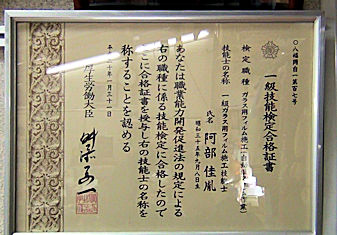 〇八福岡自一第百七号
一級技能検定合格証書
検定職種 ガラス用フィルム施工
技能士の名称 一級ガラス用フィルム施工技能士
氏名 阿部佳胤
昭和三十五年九月八日生
あなたは職業能力開発促進法の規定による
右の職種に係る技能検定に合格したので
ここに合格証書を授与し右の技能士の名称を
称することを認める
平成二十年一月三十一日
厚生労働大臣